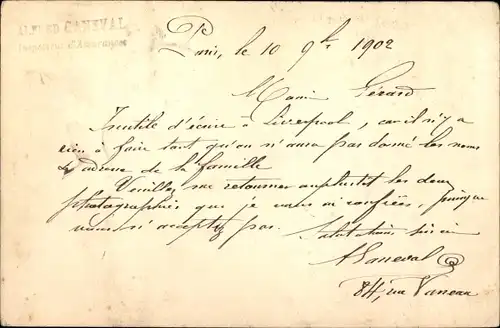 ALFRED GANEVAL
Paris, le 10 9bre 1902
Monsieur Gérard
Inutile d'écrire à Liverpool, car il n'y a
rien à faire tant qu'on n'aura pas donné les noms
& adresse de la famille
Veuillez me retourner au plus tôt les deux
photographies que je vous ai confiées, puisque
vous n'acceptez pas. Salutations
AGaneval
84, rue Vaneau